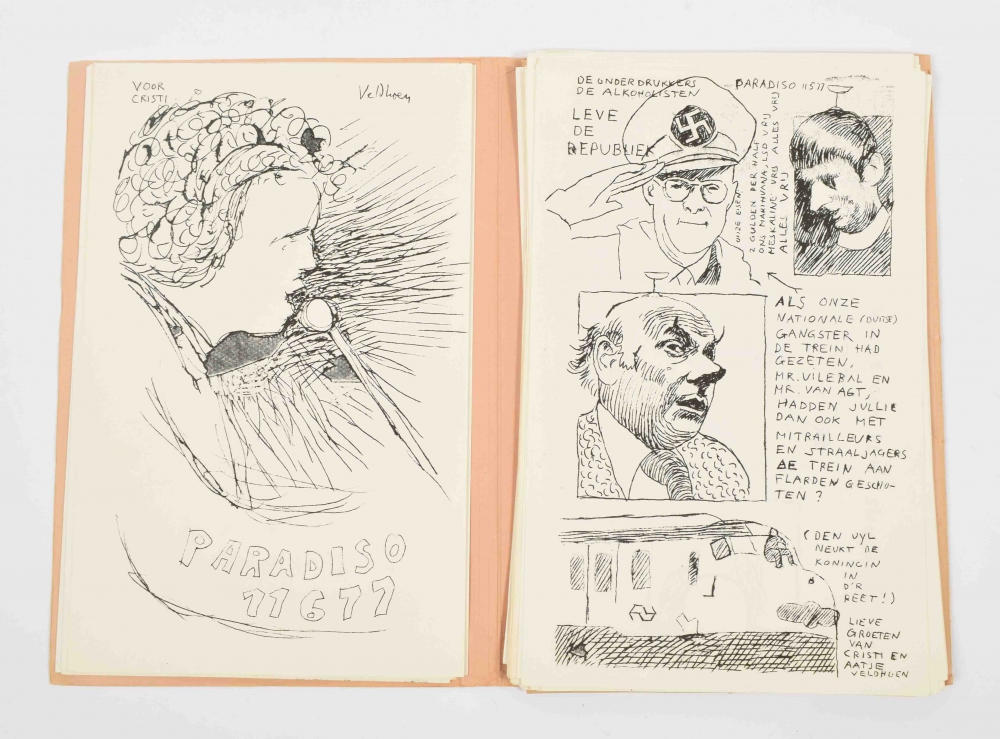 VOOR
CRISTI
Veldhoen
PARADISO
11677
DE ONDERDRUKKERS
DE ALKOHOLISTEN
LEVE
DE
REPUBLIEK
PARADISO 11577
ONZE EISEN
2 GULDEN PER HALF
ONS MARIHUANA, LSD VRIJ
MESKALINE VRIJ ALLES VRIJ
ALLES VRIJ
ALS ONZE
NATIONALE (DUITSE)
GANGSTER IN
DE TREIN HAD
GEZETEN,
MR. VILEBAL EN
MR. VAN AGT,
HADDEN JULLIE
DAN OOK MET
MITRAILLEURS
EN STRAALJAGERS
DE TREIN AAN
FLARDEN GESCHO-
TEN ?
(DEN UYL
NEUKT DE
KONINGIN
IN
D'R
REET!)
LIEVE
GROETEN
VAN
CRISTI EN
AATJE
VELDHOEN